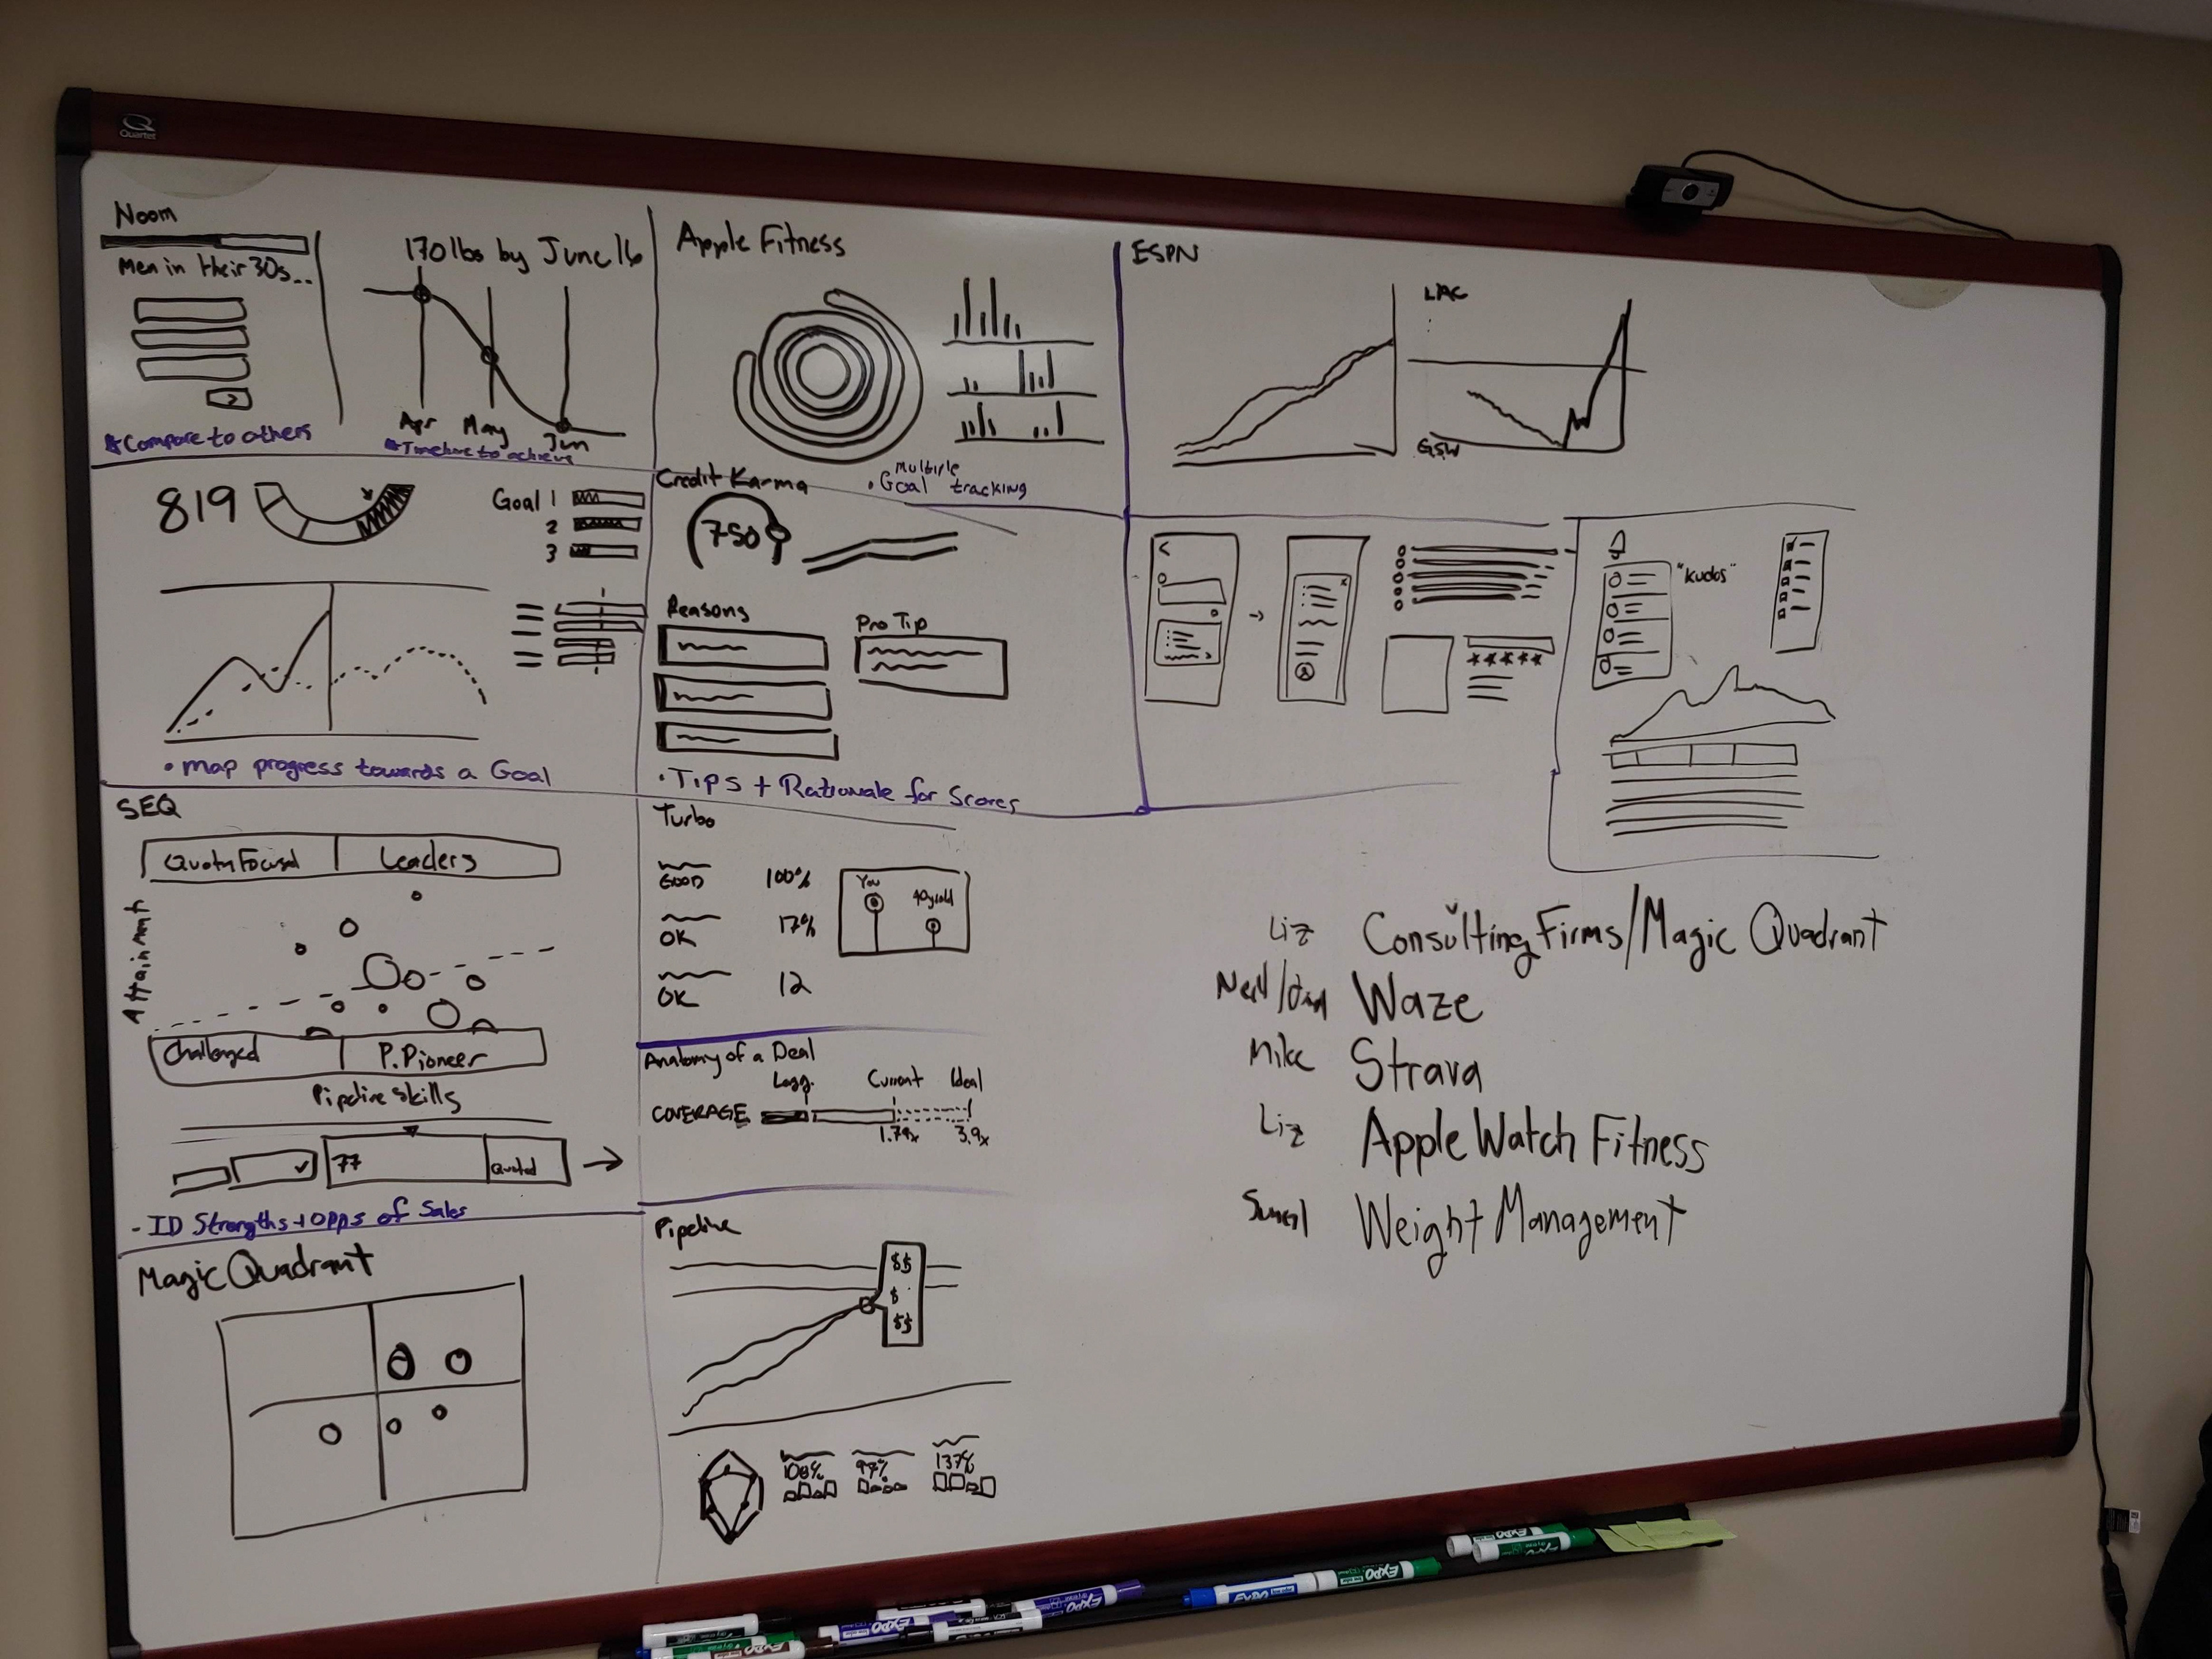 Quartet
Noom
Men in their 30s...
*Compare to others
170 lbs by June 16
Apr May Jun
*Timeline to achieve
Apple Fitness
Multiple
• Goal tracking
ESPN
LAC
GSW
819
Goal 1
2
3
• Map progress towards a Goal
Credit Karma
750
Reasons
Pro Tip
• Tips + Rationale for Scores
"Kudos"
SEQ
Quota Focused Leaders
Attainment
Challenged P. Pioneer
Pipeline skills
77 Quoted
- ID Strengths + Opps of Sales
Turbo
GOOD 100%
OK 17%
OK 12
You
Anatomy of a Deal
Lagg. Current Ideal
COVERAGE
3.9x
Magic Quadrant
Pipeline
$$
$
$$
108% 99% 137%
Liz Consulting Firms/Magic Quadrant
Waze
Mike Strava
Liz Apple Watch Fitness
Weight Management
EXPO
EXPO
EXPO
EXPO
EXPO